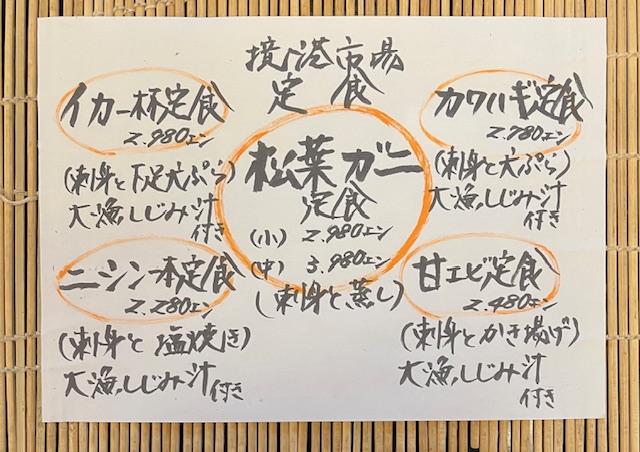 境港市場
定食
イカ一杯定食
2.980エン
(刺身と下足天ぷら)
大漁しじみ汁
付き
カワハギ定食
2.780エン
(刺身と天ぷら)
大漁しじみ汁
付き
松葉ガニ
定食
(小) 2.980エン
(中) 3.980エン
(刺身と蒸し)
ニシン一本定食
2.280エン
(刺身と塩焼き)
大漁しじみ汁
付き
甘エビ定食
2.480エン
(刺身とかき揚げ)
大漁しじみ汁
付き